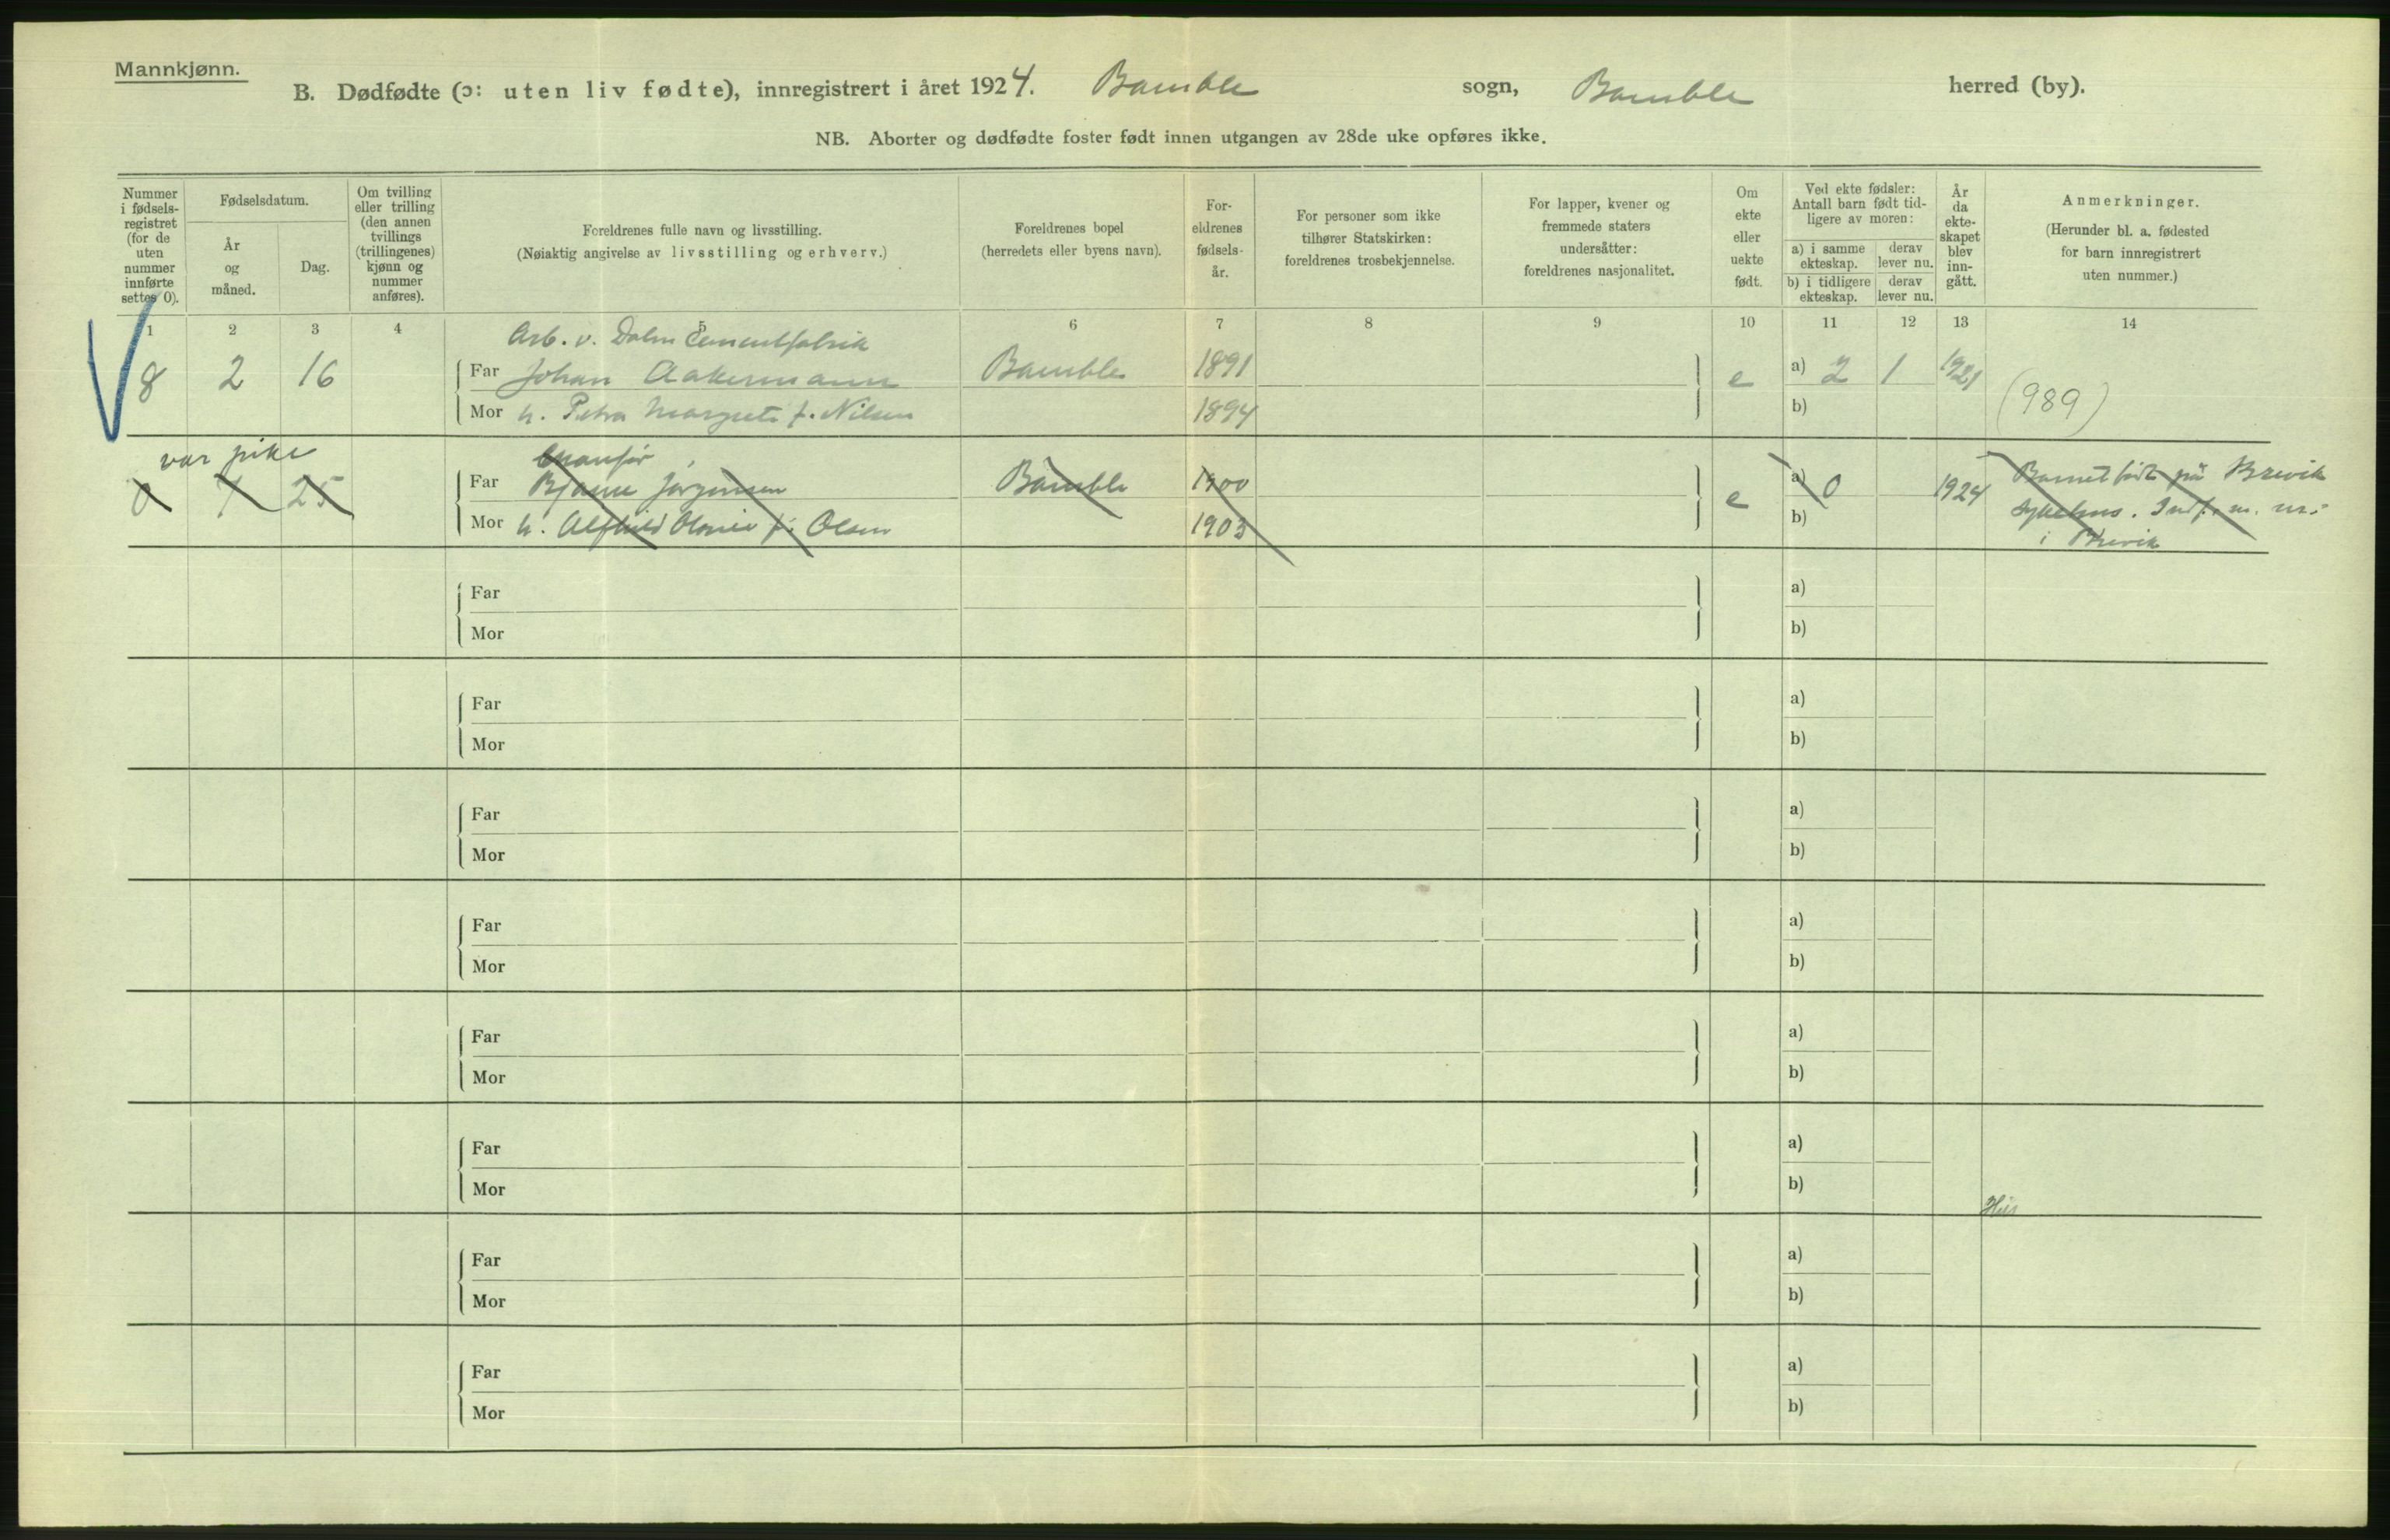 Mannkjønn.
B. Dødfødte (ɔ: uten liv fødte), innregistrert i året 1924. Bamble sogn, Bamble herred (by).
NB. Aborter og dødfødte foster født innen utgangen av 28de uke opføres ikke.
Nummer i fødsels-registret (for de uten nummer innførte settes 0).
Fødselsdatum.
År og måned.
Dag.
Om tvilling eller trilling (den annen tvillings (trillingenes) kjønn og nummer anføres).
Foreldrenes fulle navn og livsstilling.
(Nøiaktig angivelse av livsstilling og erhverv.)
Foreldrenes bopel
(herredets eller byens navn).
For-eldrenes fødsels-år.
For personer som ikke tilhører Statskirken: foreldrenes trosbekjennelse.
For lapper, kvener og fremmede staters undersåtter: foreldrenes nasjonalitet.
Om ekte eller uekte født.
Ved ekte fødsler: Antall barn født tid-ligere av moren:
a) i samme ekteskap. derav lever nu.
b) i tidligere ekteskap. derav lever nu.
År da ekte-skapet blev inn-gått.
Anmerkninger.
(Herunder bl. a. fødested for barn innregistrert uten nummer.)
1 2 3 4 5 6 7 8 9 10 11 12 13 14
Arb. v. Dalen Cementfabrik
8 2 16 Far Johan Aakermann Bamble 1891 e a) 2 1 1921 (989)
Mor h. Petra Margrete f. Nilsen 1894 b)
var pike
0 7 25 Far Bjarne Jørgensen Bamble 1900 e a) 0 1924 Barnet født på Brevik
Mor h. Alfhild f. Olsen 1903 b) sykehus. Indf. m. nr.
i Brevik
Far a)
Mor b)
Far a)
Mor b)
Far a)
Mor b)
Far a)
Mor b)
Far a)
Mor b)
Far a)
Mor b)
Far a)
Mor b)
Far a)
Mor b)